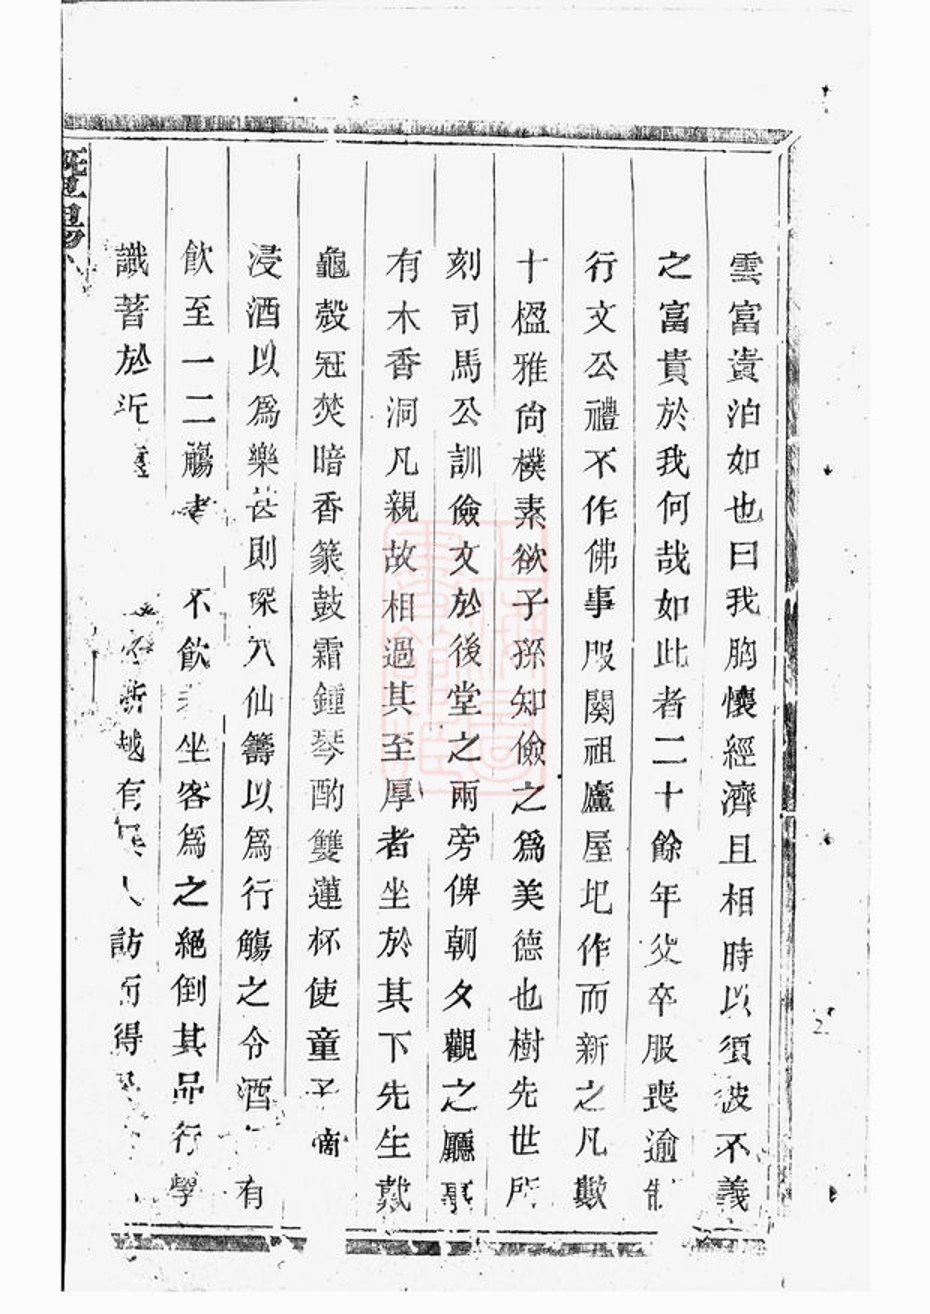 雲富貴泊如也曰我胸懷經濟且相時以須彼不義
之富貴於我何哉如此者二十餘年父卒服喪逾制
行文公禮不作佛事服闋祖廬屋圮作而新之凡數
十楹雅尙樸素欲子孫知儉之爲美德也樹先世所
刻司馬公訓儉文於後堂之兩旁俾朝夕觀之廳事
有木香洞凡親故相過其至厚者坐於其下先生戴
龜殼冠焚暗香篆鼓霜鍾琴酌雙蓮杯使童子
浸酒以爲樂甚則探八仙籌以爲行觴之令酒 有
飲至一二觴者 不飲 坐客爲之絕倒其品行學
識著於近 越有 人訪而得